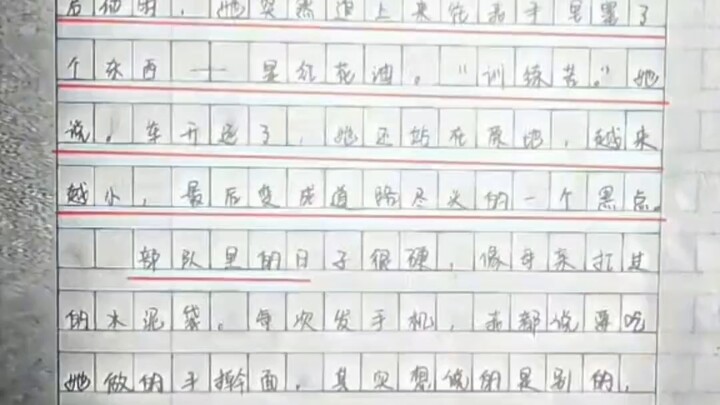 后他的，她突然追上来往我手里塞了
个东西——是红花油。“训练苦。”她
说。车开远了，她还站在原地，越来
越小，最后变成道路尽头的一个黑点。
部队里的日子很硬，像母亲扛过
的水泥袋。每次发手机，我都说要吃
她做的手擀面，其实想说的是别的，